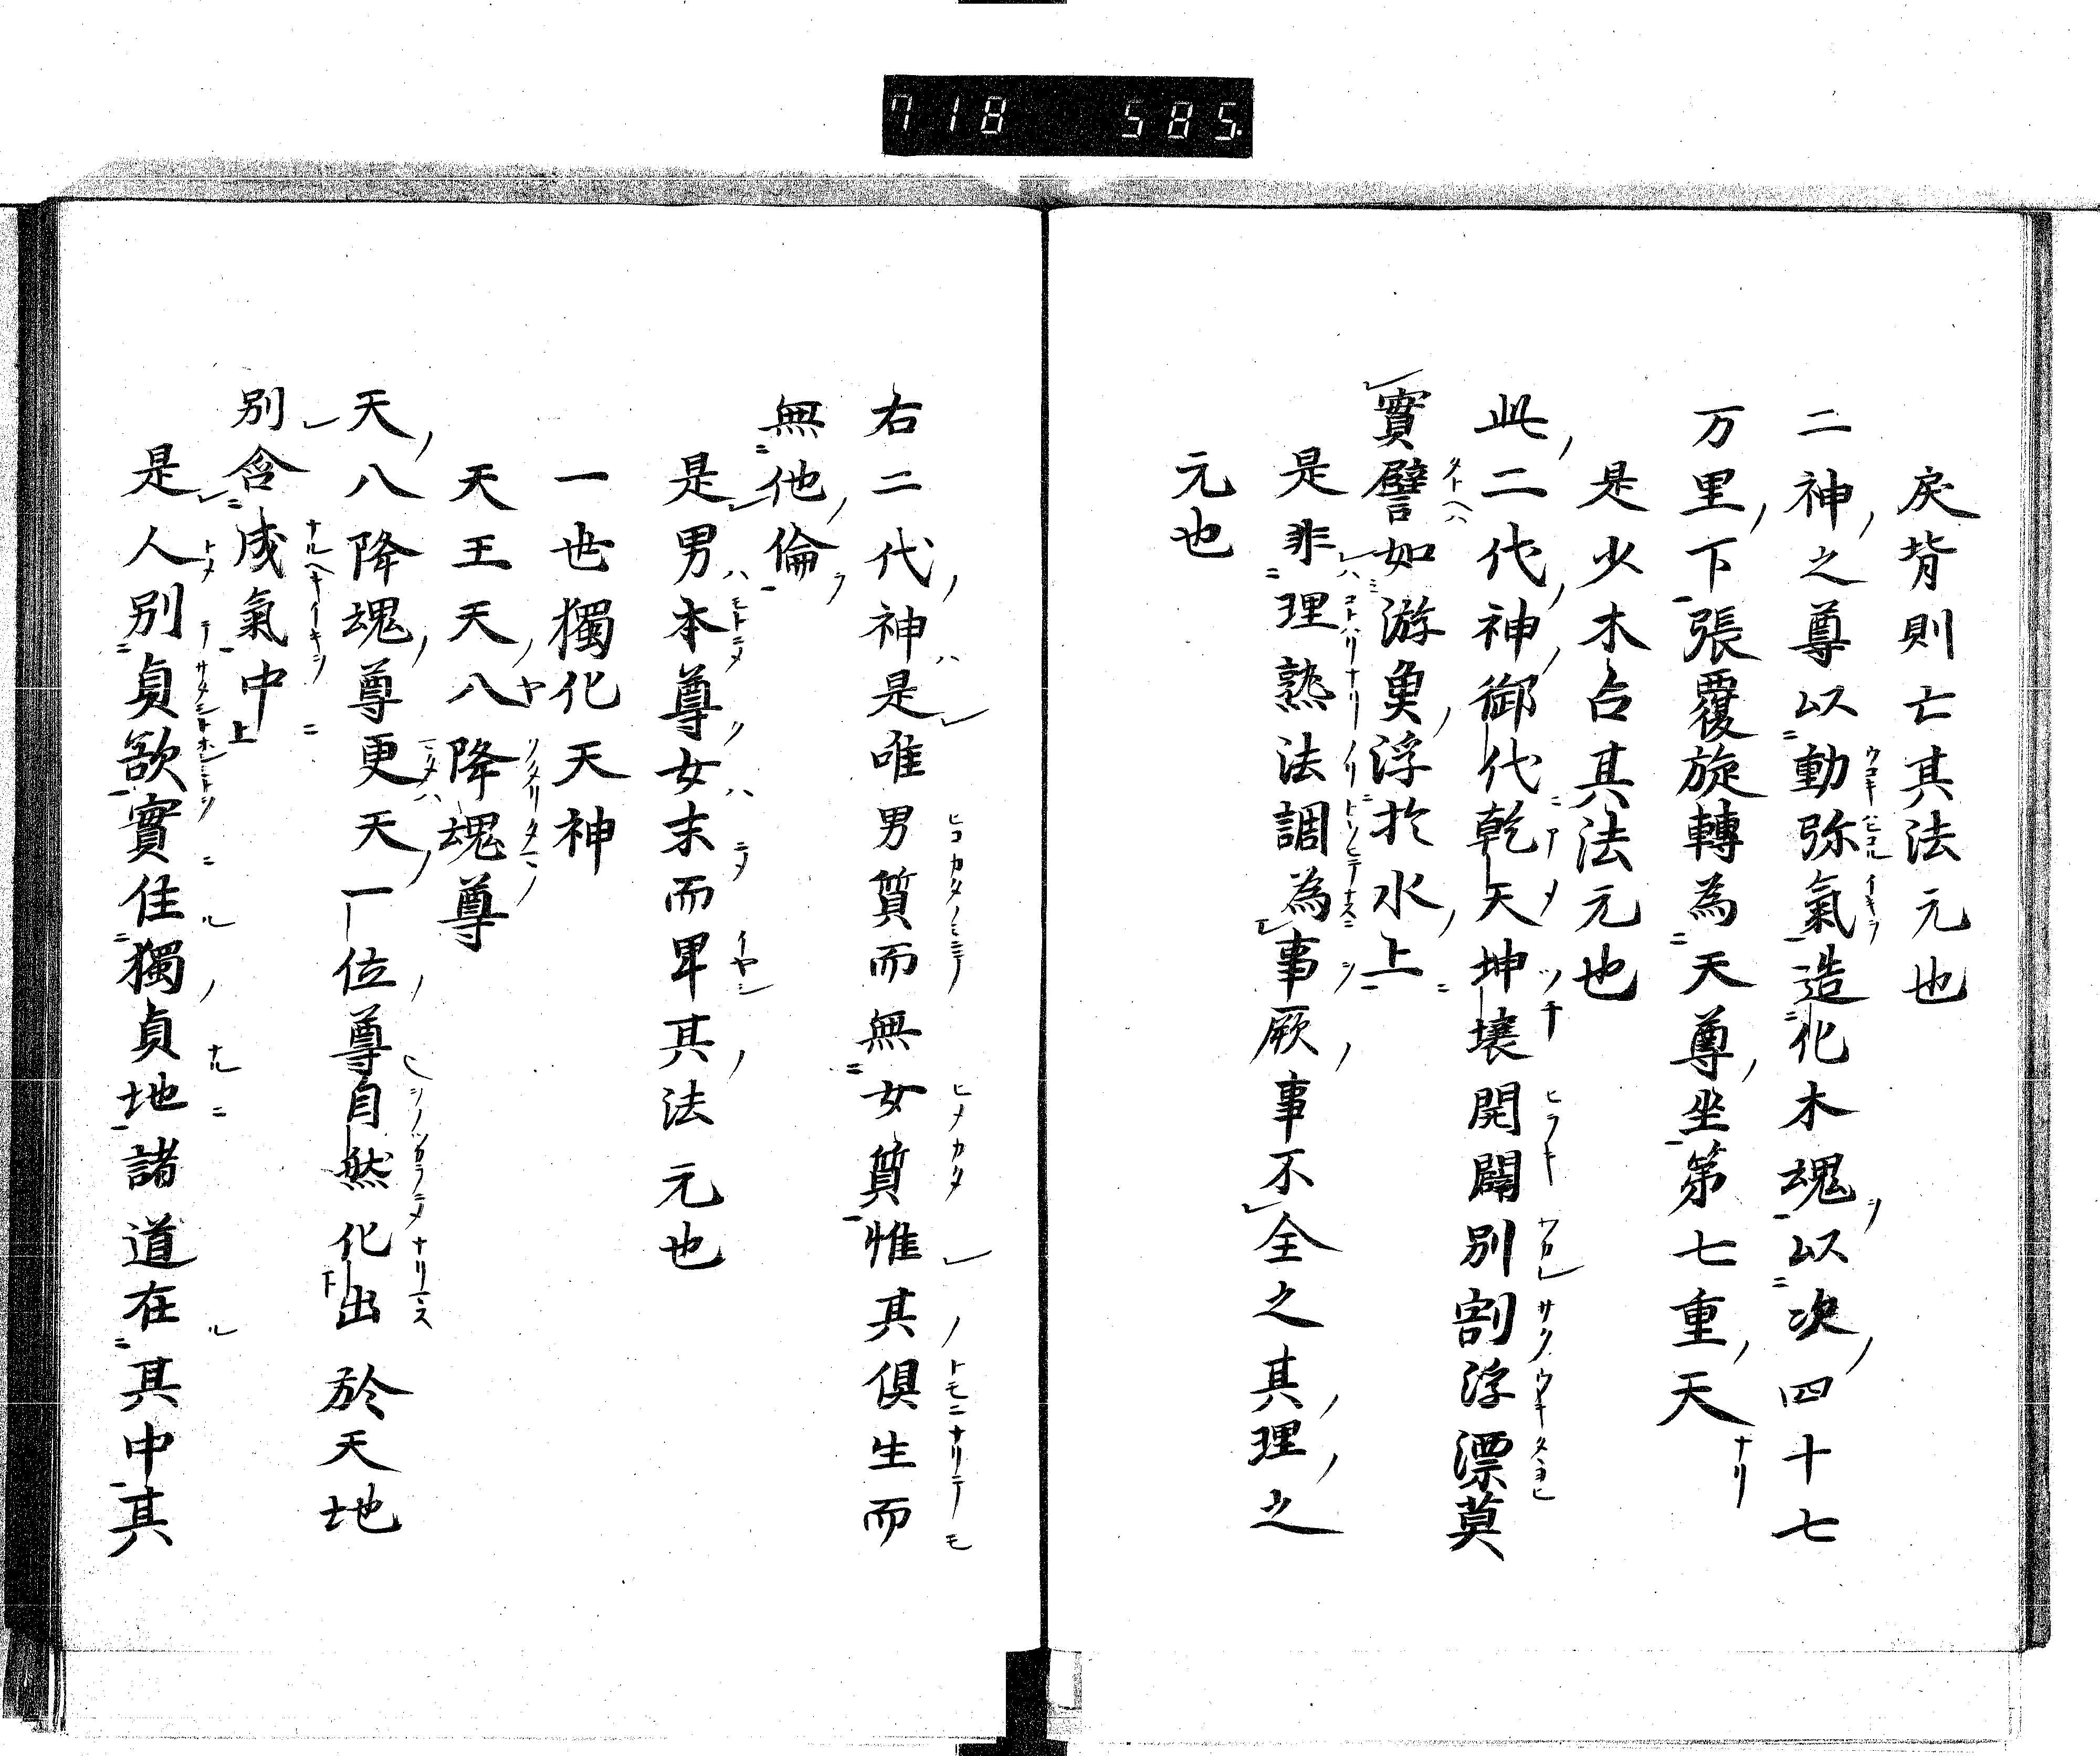 718 585.
戾背則亡其法元也
二神之尊以動弥氣造化木魂以次四十七
万里下張覆旋轉為天尊坐第七重天
是少木占其法元也
此二代神御代乾天坤壤開闢別割浮漂莫
實譬如游魚浮於水上
是非理熟法調為事厥事不全之其理之
元也
右二代神是唯男質而無女質惟其俱生而
無他倫
是男本尊女末而卑其法元也
一世獨化天神
天王天八降魂尊
天八降魂尊更天一位尊自然化出於天地
別含成氣中
是人別貞欲實住獨貞地諸道在其中其